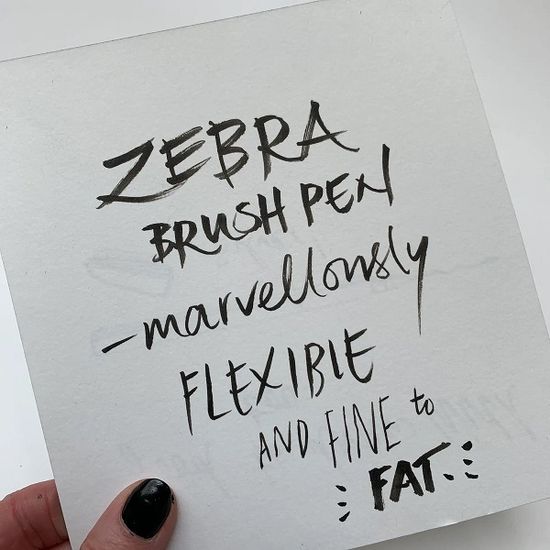 ZEBRA
BRUSH PEN
-marvellously
FLEXIBLE
AND FINE to
FAT.